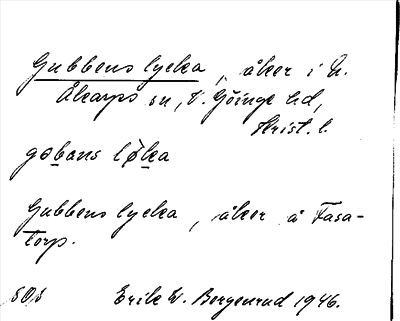 Gubbens lycka, åker i N.
Åkarps sn, V. Göinge hd,
Krist. l.
gobans løka
Gubbens lycka, åker å Fasa-
torp.
SOS Erik W. Bergenrud 1946.